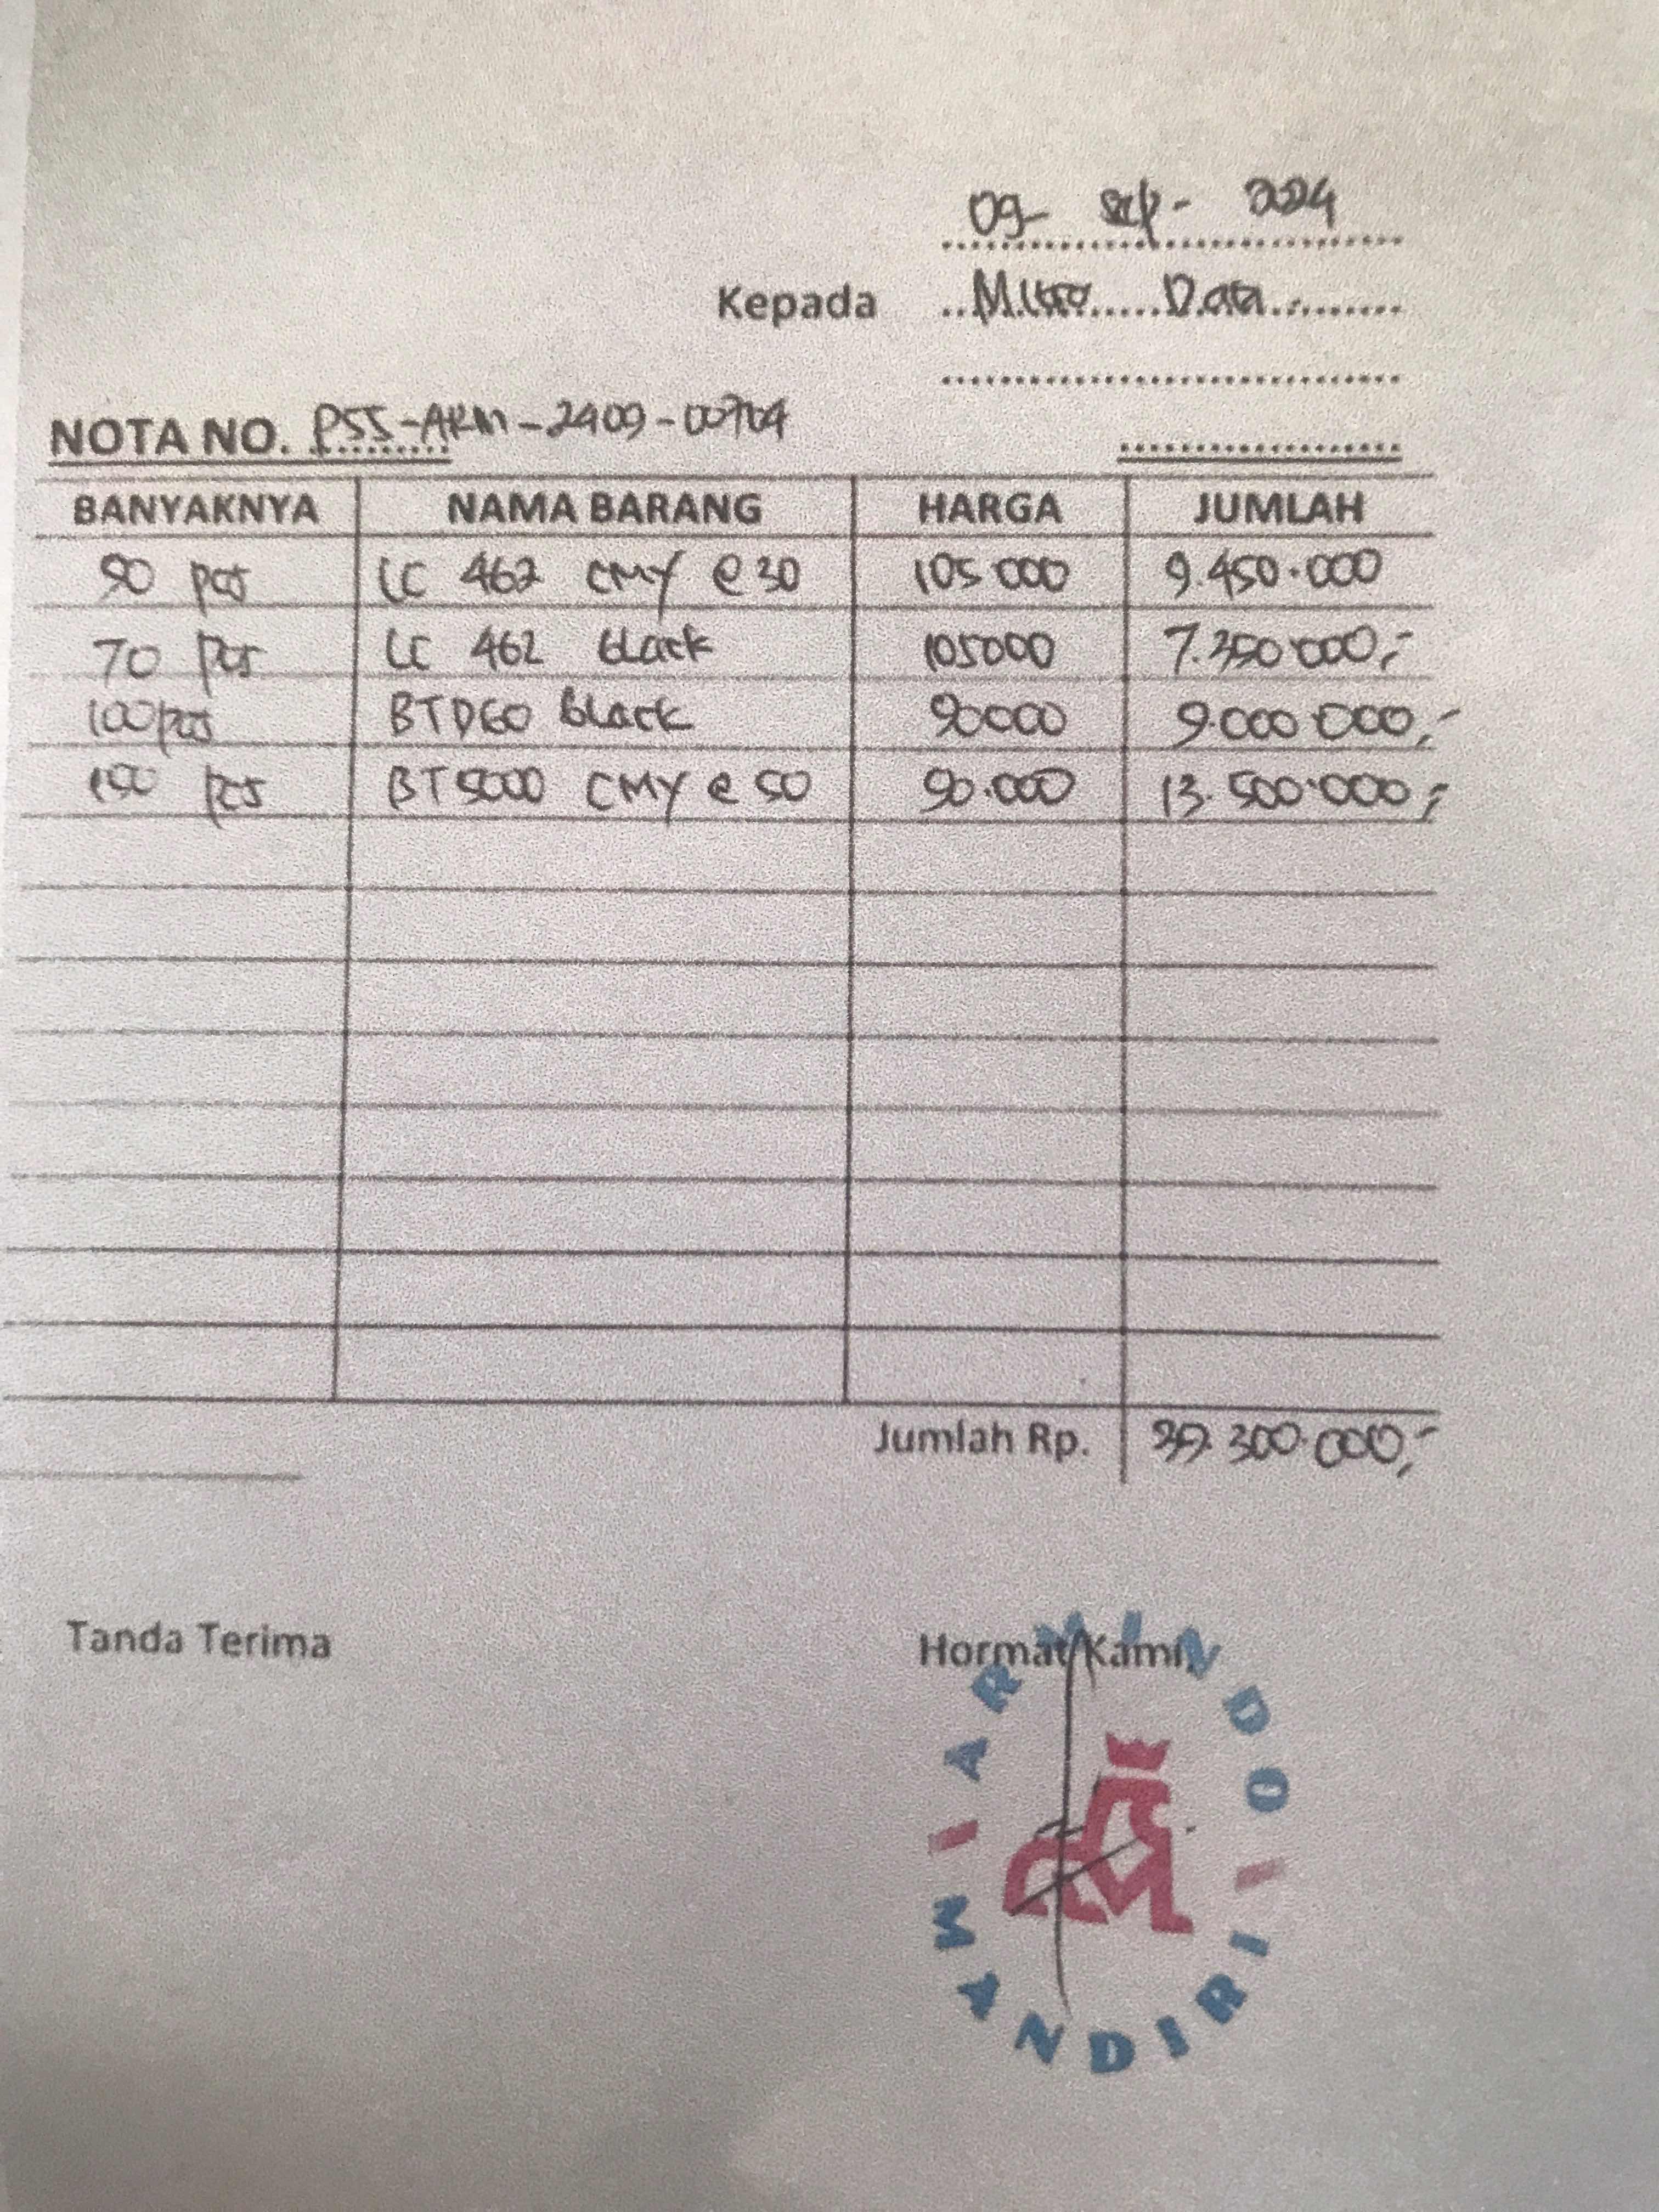 09- Sep- 2024
Kepada Mitra Data
NOTA NO. PSS-ARM-2409-00704
BANYAKNYA NAMA BARANG HARGA JUMLAH
90 pcs LC 462 CMY @ 30 105 000 9.450.000
70 pcs LC 462 black 105000 7.350.000,-
100 pcs BTD60 black 90000 9.000.000,-
150 pcs BT5000 CMY @ 50 90.000 13.500.000,-
Jumlah Rp. 39.300.000,-
Tanda Terima Hormat Kami,
ARMINDO
MANDIRI